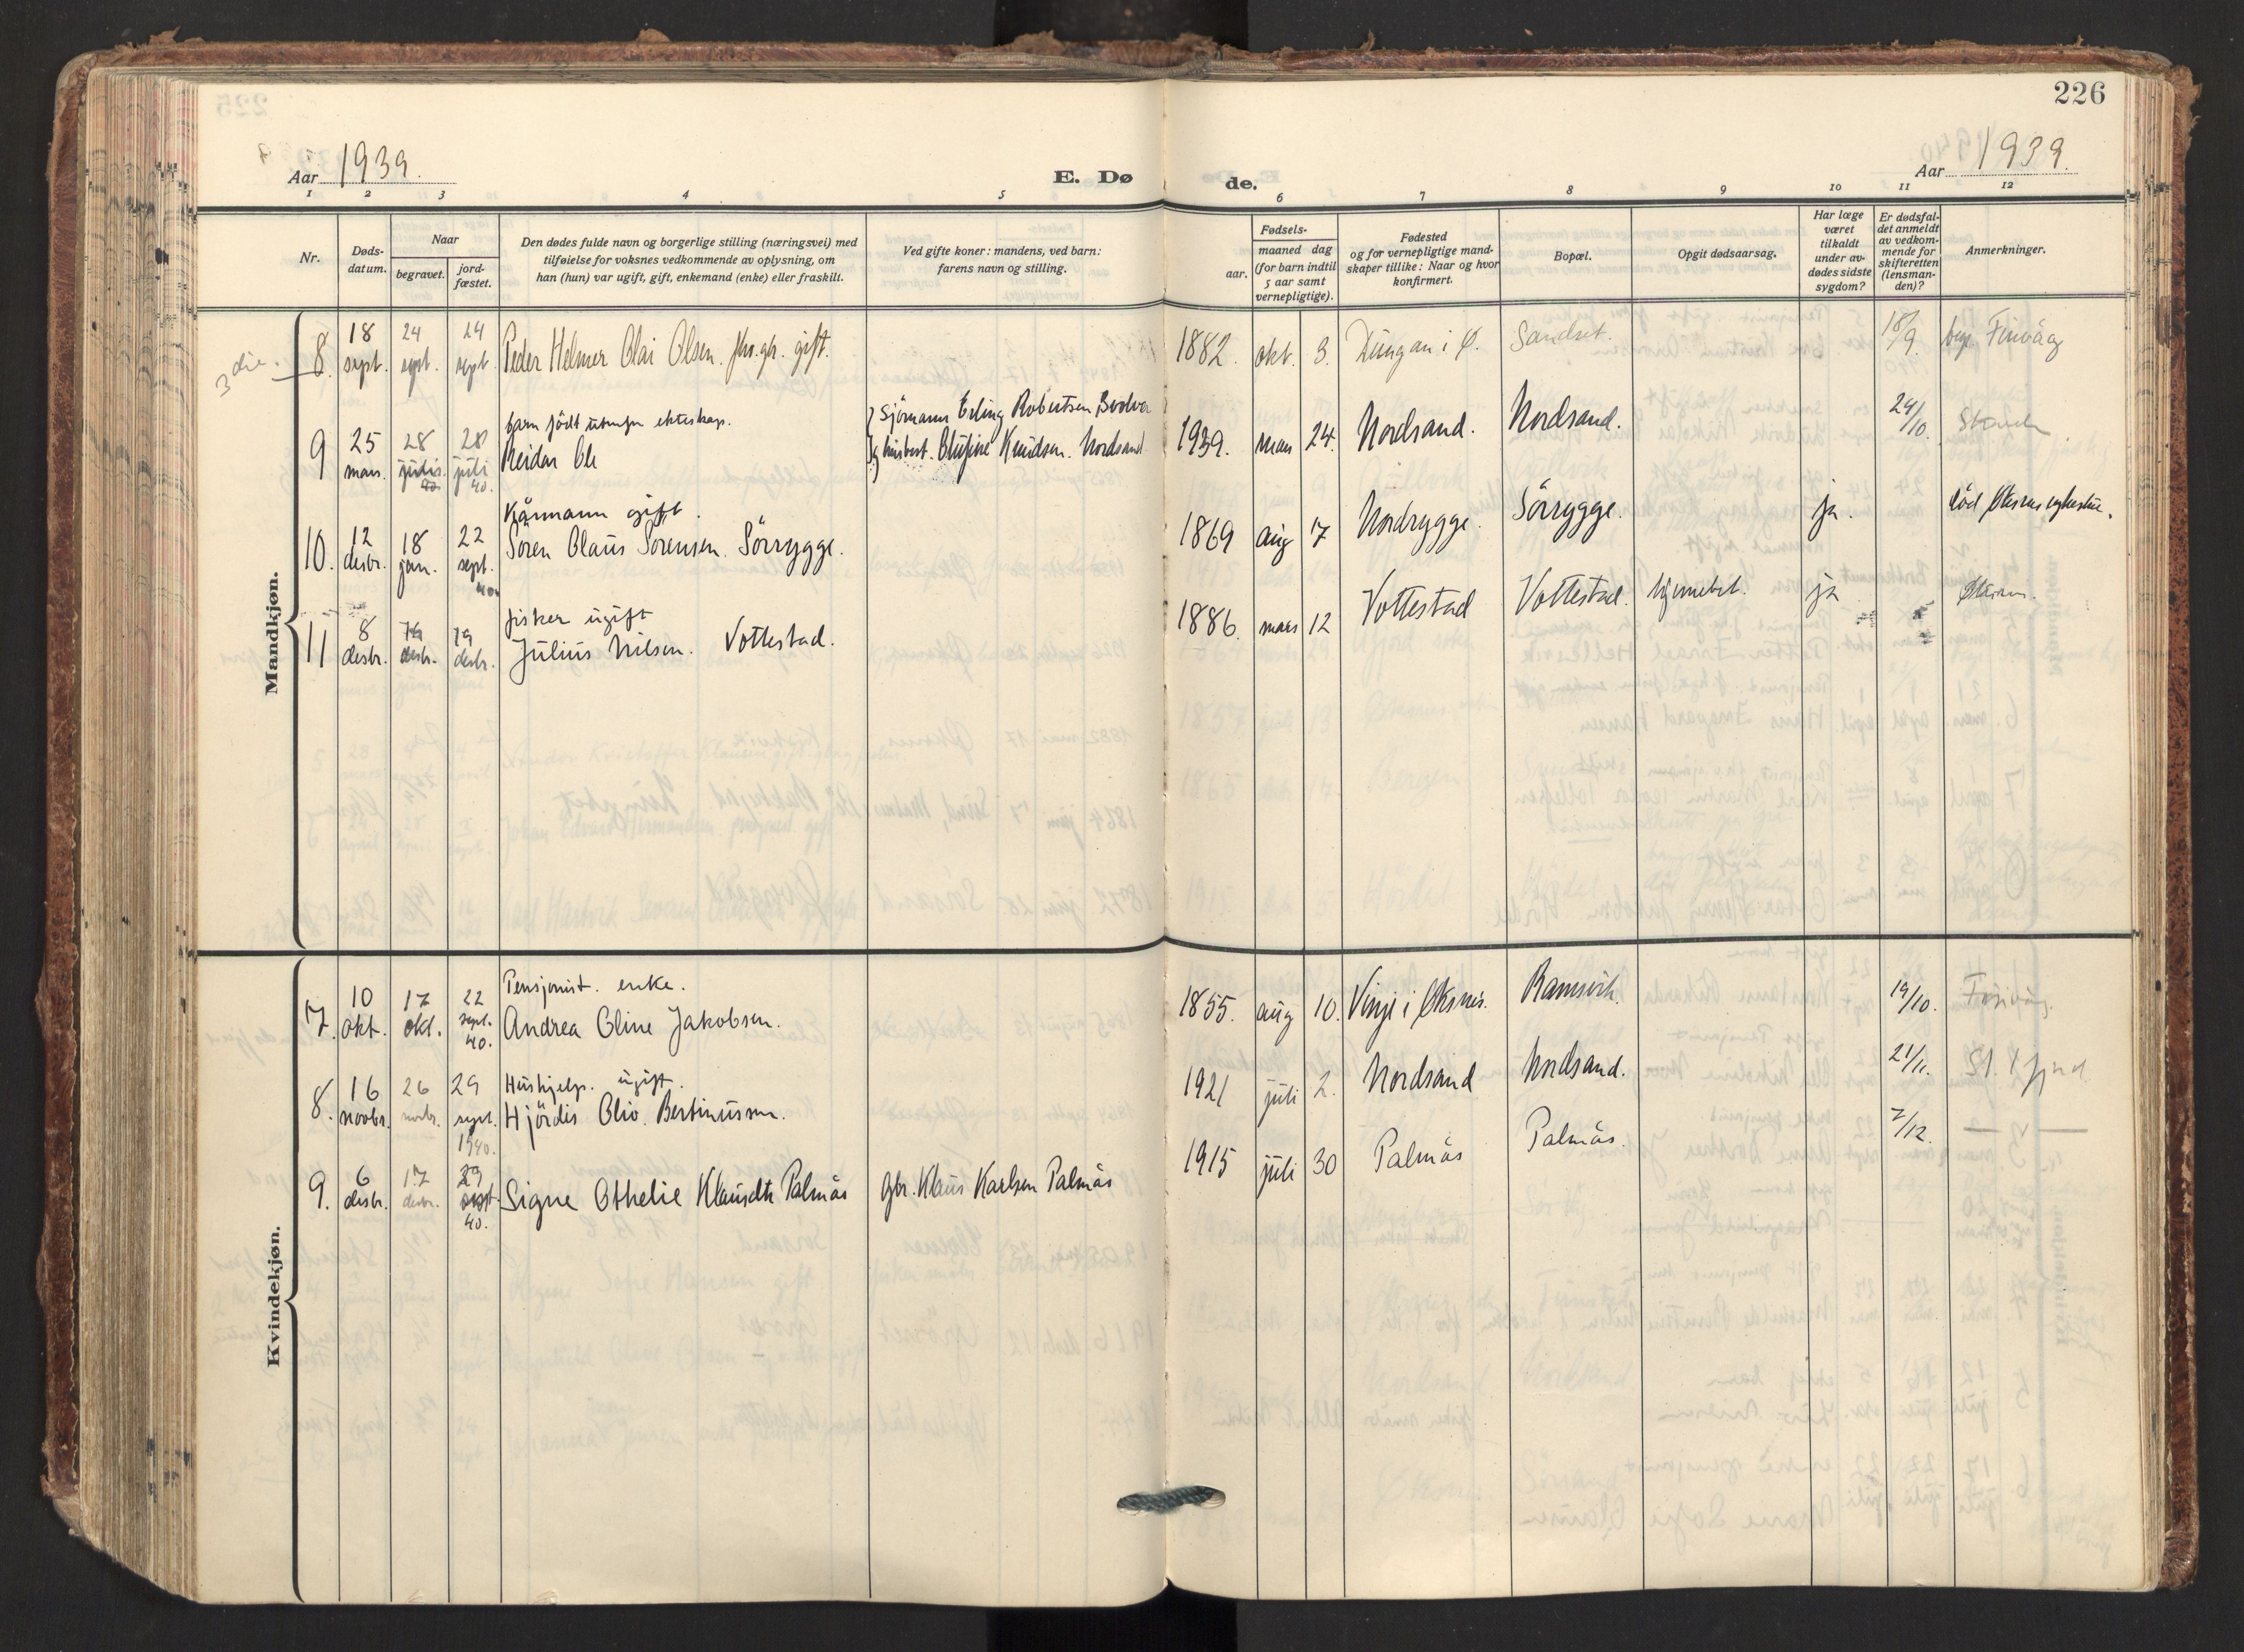 226
Aar 1939.
E. Dø
de.
Aar 1939.
1 2 3 4 5 6 7 8 9 10 11 12
Nr.
Døds-
datum.
Naar
begravet.
jord-
fæstet.
Den dødes fulde navn og borgerlige stilling (næringsvei) med
tilføielse for voksnes vedkommende av oplysning, om
han (hun) var ugift, gift, enkemand (enke) eller fraskilt.
Ved gifte koner: mandens, ved barn:
farens navn og stilling.
Fødsels-
aar.
maaned dag
(for barn indtil
5 aar samt
vernepligtige).
Fødested
og for vernepligtige mand-
skaper tillike: Naar og hvor
konfirmert.
Bopæl.
Opgit dødsaarsag.
Har læge
været
tilkaldt
under av-
dødes sidste
sygdom?
Er dødsfal-
det anmeldt
av vedkom-
mende for
skifteretten
(lensman-
den)?
Anmerkninger.
Mandkjøn.
8. 18 sept. 24 sept. 24 sept. Peder Helmer Olai Olsen. gift. 1882. okt. 3. Sandset. 18/9.
barn födt utenfor ekteskap.
9 25 mars. 28 juli 40 28 juli 40. Reidar Ole
Sjömann Erling Robertsen
Knudsen. Nordsand
1939. mars 24. Nordsand. Nordsand. 24/10.
Kårmann gift.
10. 12 desbr. 18 jan. 22 sept. 40 Sören Olaus Sörensen. Sörrygge. 1869 aug 17 Nordrygge. Sörrygge. ja.
fisker ugift
11 8 desbr. desbr. 19 desbr. Julius Nilsen. Vottestad. 1886. mars 12 Vottestad Vottestad. ja
Kvindekjøn.
Pensjonist. enke.
7. 10 okt. 17 okt. 22 sept. 40. Andrea Oline Jakobsen. 1855. aug 10. Vinje i Øksnes. Ramsvik. 19/10.
Hushjelp. ugift.
8. 16 novbr. 26 novbr. 29 sept. 1940. Hjördis Oliv. Bertinussen. 1921 juli 2. Nordsand Nordsand. 21/11.
9. 6 desbr. 17 desbr. 29 sept. 40. Signe Othelie Klausdtr Palmås gbr. Klaus Karlsen Palmås 1915 juli 30 Palmås Palmås. 7/12.